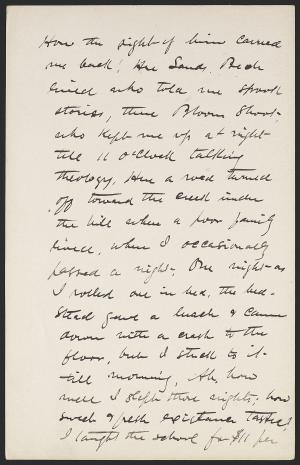 How the sight of him carried
me back! Here Sands Bech
lived who told me spook
stories, then Bloom Shout,
who kept me up at night
till 11 o'clock talking
theology. Here a road turned
off toward the creek under
the hill where a poor family
lived, where I occasionally
passed a night. One night as
I rolled over in bed, the bed-
stead gave a lurch & came
down with a crash to the
floor, but I stuck to it
till morning. Ah, how
well I slept those nights; how
sweet & fresh existence tasted!
I taught the school for $11 per